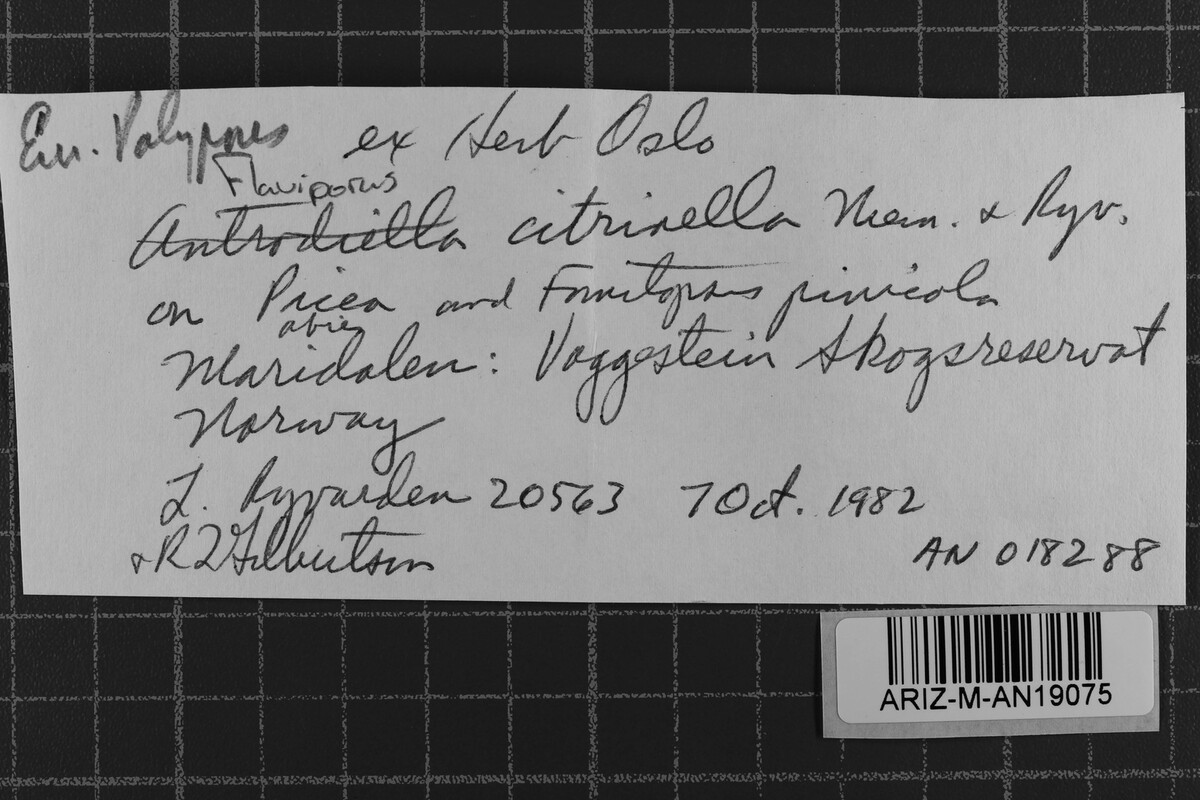 Eur. Polypores ex Herb Oslo
Flaviporus
Antrodiella citrinella Niem. & Ryv.
on Picea and Fomitopsis pinicola
abies
Maridalen: Vaggestein Skogsreservat
Norway
L. Ryvarden 20563 7 Oct. 1982
& R L Gilbertson
AN 018288
ARIZ-M-AN19075